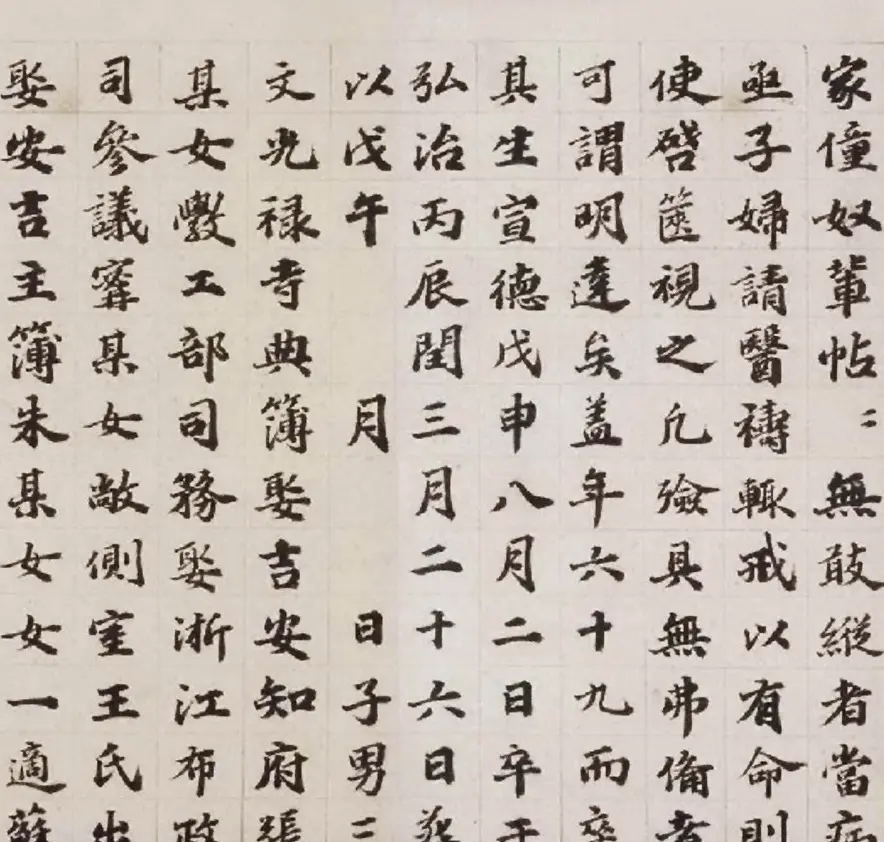 家僮奴軰帖〻無敢縱者當病
亟子婦請醫禱輒戒以有命則
使啓篋視之凡殮具無弗備者
可謂明達矣盖年六十九而卒
其生宣德戊申八月二日卒于
弘治丙辰閏三月二十六日葬
以戊午 月 日子男二
文光禄寺典簿娶吉安知府張
某女斅工部司務娶浙江布政
司參議寗某女敞側室王氏出
娶安吉主簿朱某女女一適蘇